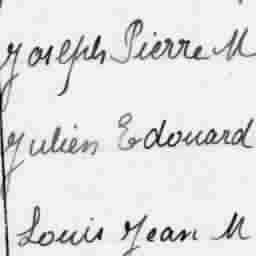 Joseph Pierre M
Julien Edouard
Louis Jean M